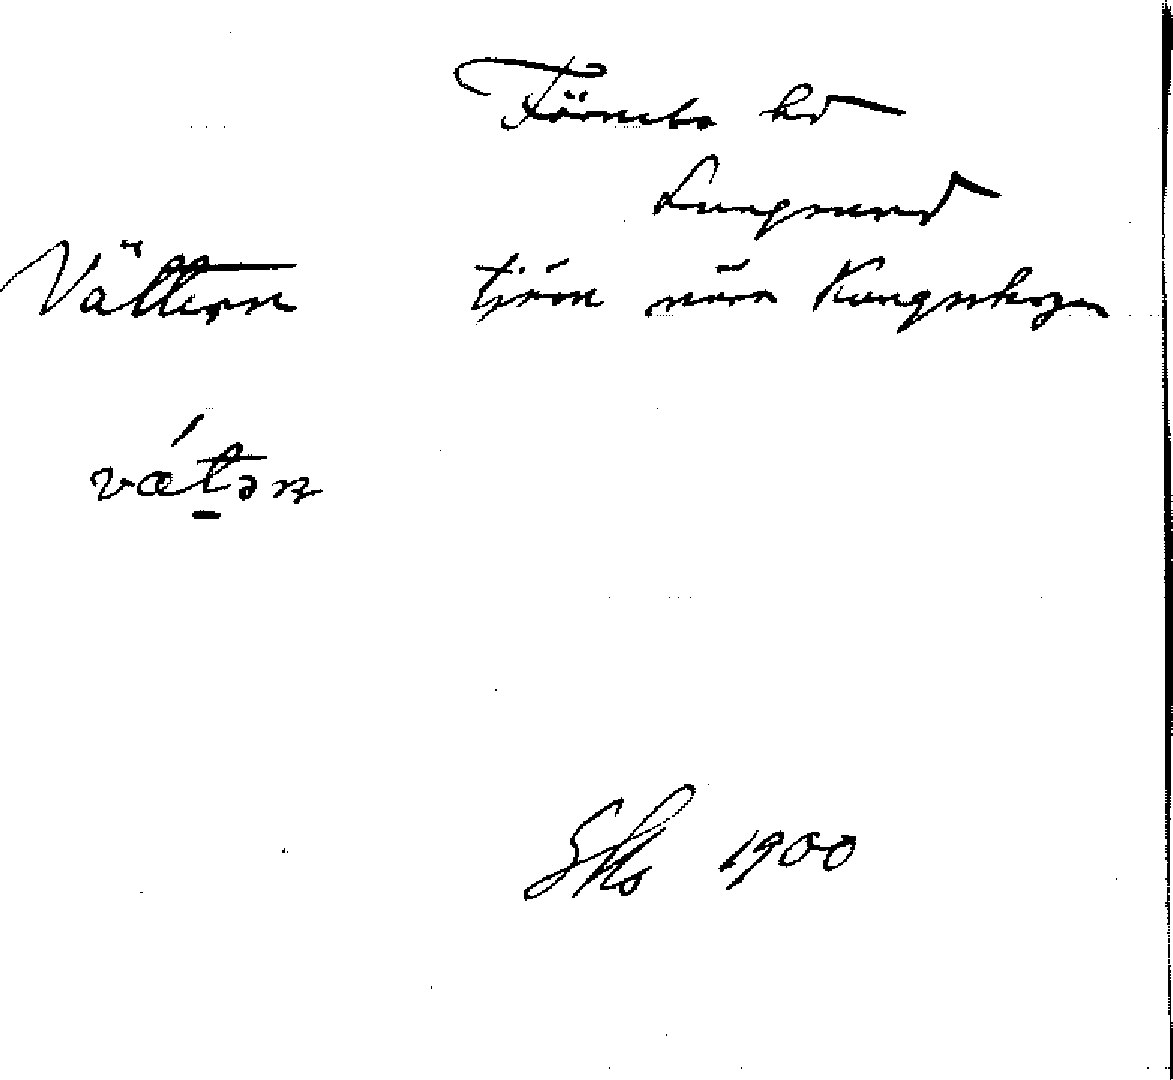 Färnebo hd
Lungsund
Vättern tjärn nära Kungsskogen
vǽtən
1900